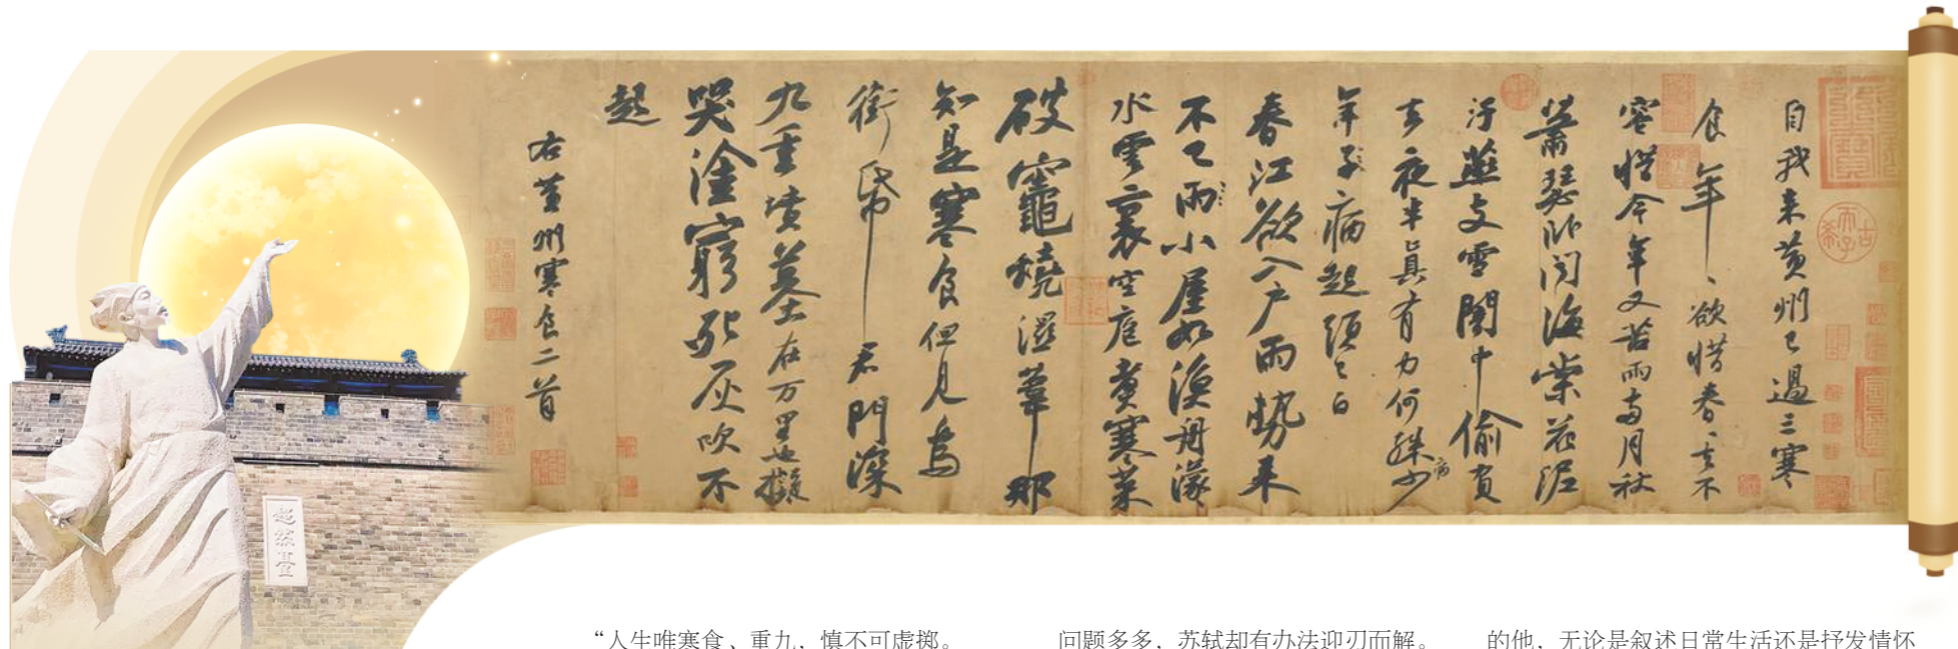 自我来黄州已過三寒
食年、欲惜春、去不
容惜今年又苦雨兩月秋
蕭瑟卧聞海棠花泥
汙燕支雪闇中偷負
去夜半真有力何殊少病
年子病起須已白
春江欲入户雨勢来
不已雨小屋如漁舟濛
水雲裏空庖煮寒菜
破竈燒濕葦那
知是寒食但見烏
銜帋君門深
九重墳墓在万里也擬
哭塗窮死灰吹不
起
右黄州寒食二首
超然臺
“人生唯寒食、重九，慎不可虚掷。
问题多多，苏轼却有办法迎刃而解。
的他，无论是叙述日常生活还是抒发情怀